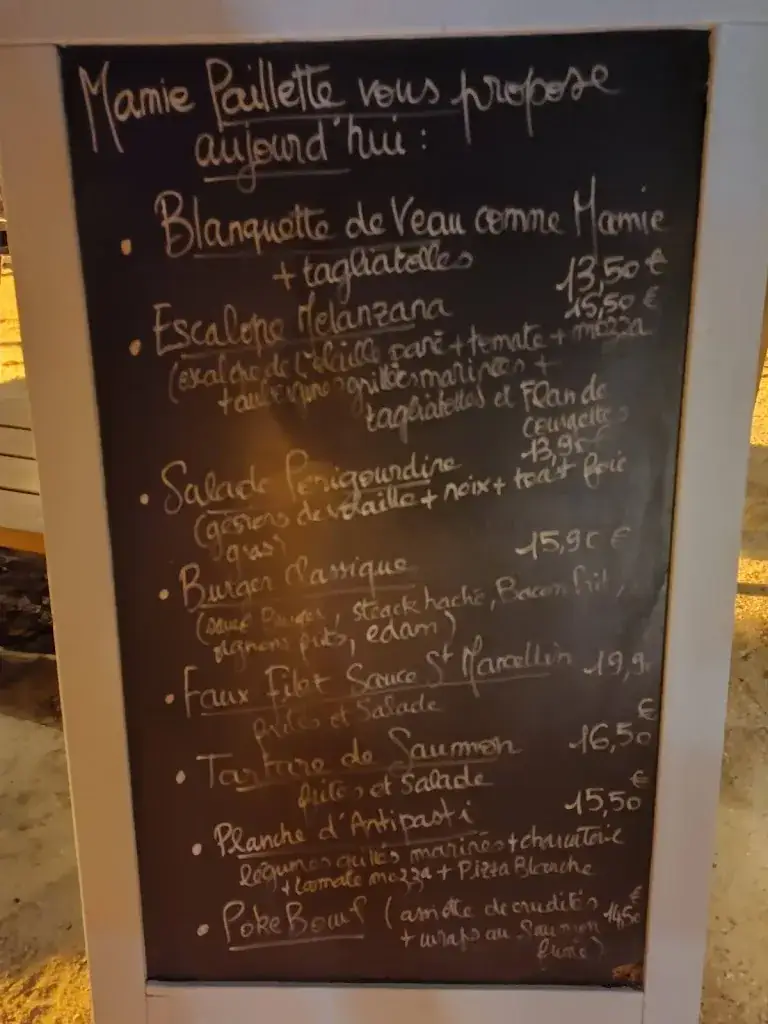 Mamie Paillette vous propose
aujourd'hui :
• Blanquette de Veau comme Mamie
+ tagliatelles 13,50 €
• Escalope Melanzana 15,50 €
(escalope de volaille pané + tomate + mozza
+ aubergines grillées marinées +
tagliatelles et Flan de
courgettes
• Salade Perigourdine 13,90 €
(gésiers de volaille + noix + toast foie
gras)
• Burger Classique 15,90 €
(sauce Burger, steack haché, Bacon frit,
oignons frits, edam)
• Faux Filet Sauce St Marcellin 19,90
frites et Salade €
• Tartare de Saumon 16,50
frites et Salade €
• Planche d'Antipasti 15,50
légumes grillés marinés + charcuterie
+ tomate mozza + Pizza Blanche
• Poke Bowl (assiette de crudités 14,50 €
+ wraps au Saumon
fumé)